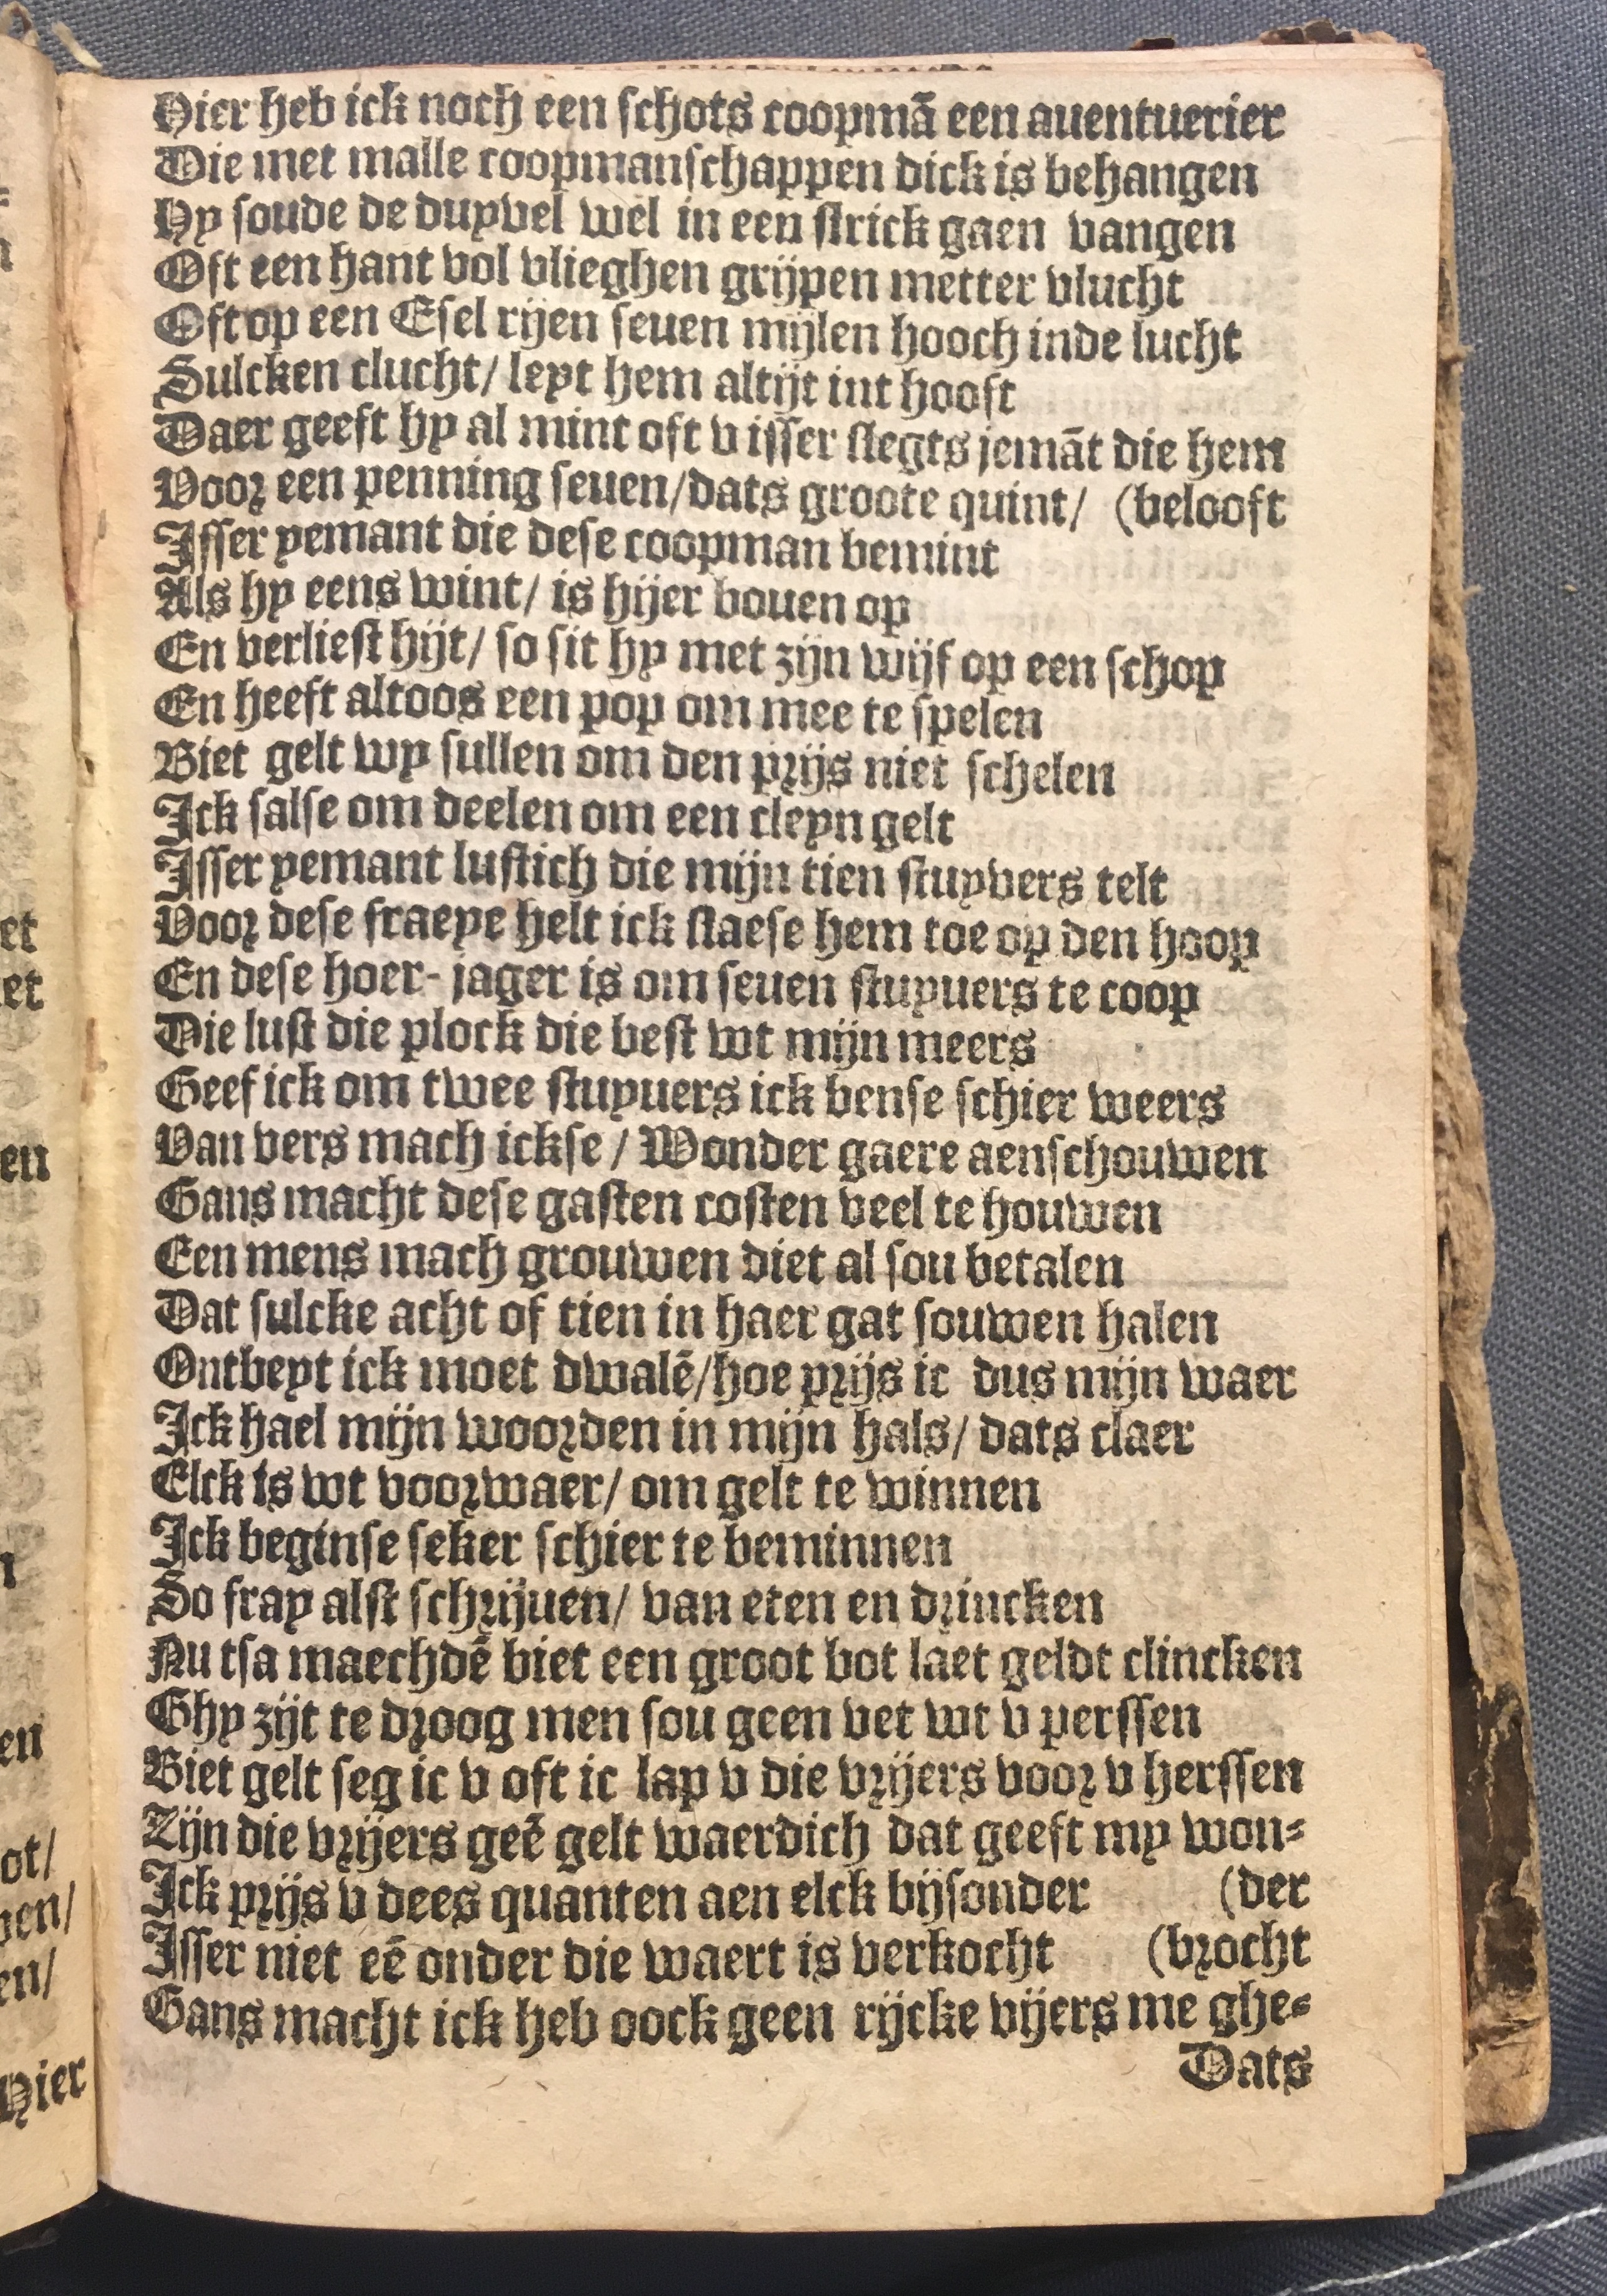 Hier heb ick noch een schots coopmā een auentuerier
Die met malle coopmanschappen dick is behangen
Hy soude de duyvel wel in een strick gaen vangen
Oft een hant vol vlieghen grijpen metter vlucht
Oft op een Esel rijen seuen mijlen hooch inde lucht
Sulcken clucht/ leyt hem altijt int hooft
Daer geeft hy al mint oft v isser slegts jemāt die hem
Voor een penning seuen/dats groote quint/ (belooft
Isser yemant die dese coopman bemint
Als hy eens wint/ is hijer bouen op
En verliest hijt/ so sit hy met zijn wijf op een schop
En heeft altoos een pop om mee te spelen
Biet gelt wy sullen om den prijs niet schelen
Ick salse om deelen om een cleyn gelt
Isser yemant lustich die mijn tien stuyvers telt
Voor dese fraeye helt ick slaese hem toe op den hoop
En dese hoer-jager is om seuen stuyuers te coop
Die lust die plock die best wt mijn meers
Geef ick om twee stuyuers ick bense schier weers
Van vers mach ickse / Wonder gaere aenschouwen
Gans macht dese gasten costen veel te houwen
Een mens mach grouwen diet al sou betalen
Dat sulcke acht of tien in haer gat souwen halen
Ontbeyt ick moet dwalē/hoe prijs ic dus mijn waer
Ick hael mijn woorden in mijn hals/ dats claer
Elck is wt voorwaer/ om gelt te winnen
Ick beginse seker schier te beminnen
So fray alst schrijuen/ van eten en drincken
Nu tsa maechdē biet een groot bot laet geldt clincken
Ghy zijt te droog men sou geen vet wt v perssen
Biet gelt seg ic v oft ic lap v die vrijers voor v herssen
Zijn die vrijers geē gelt waerdich dat geeft my won=
Ick prijs v dees quanten aen elck bijsonder (der
Isser niet eē onder die waert is verkocht (brocht
Gans macht ick heb oock geen rijcke vijers me ghe=
Dats
et
et
en
en
ot/
en/
Hier